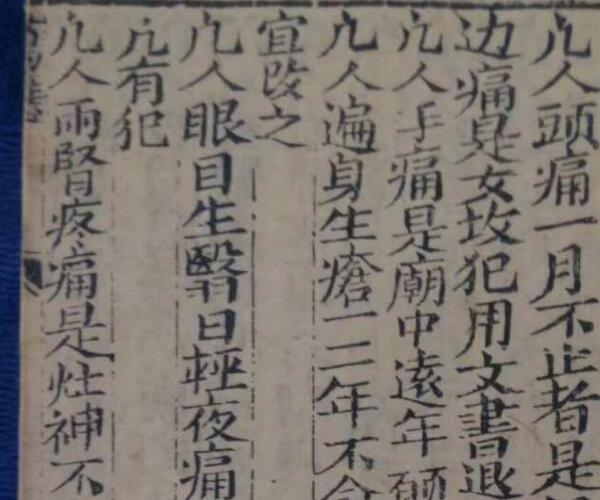 凢人頭痛一月不止者是
边痛是女坟犯用文書退
凢人手痛是廟中逺年
凢人遍身生瘡一二年不
宜改之
凢人眼目生翳日輕夜痛
凢有犯
凢人兩腎疼痛是灶神不